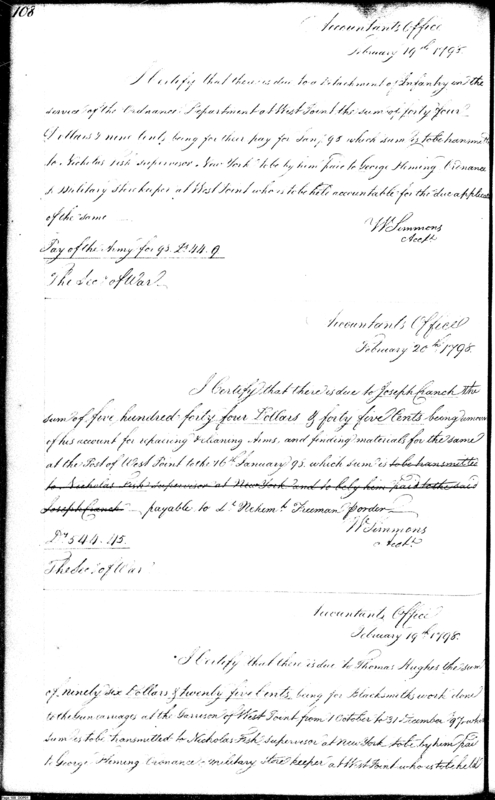 108
Accountants Office
February 19th 1798.
I Certify that there is due to a Detachment of Infantry in the
service of the Ordnance Department at West Point the sum of forty four
Dollars & nine Cents being for their pay for Jany 98 which sum is to be transmitted
to Nicholas Fish supervisor New York to be by him paid to George Fleming Ordnance
& Military Storekeeper at West Point who is to be held accountable for the due application
of the same
Wm Simmons
Acct.
Pay of the Army for 98 Ds 44.9
The Secy of War
Accountants Office
February 20th 1798.
I Certify that there is due to Joseph Cranch the
sum of five hundred forty four Dollars & forty five Cents being amount
of his account for repairing & cleaning Arms, and finding materials for the same
at the Post of West Point to the 16th January 98 which sum is to be transmitted
to Nicholas Fish supervisor at New York and to be by him paid to the said
Joseph Cranch payable to Lt Nehemh Freeman p order
Wm Simmons
Acct.
Ds 544.45
The Secy of War
Accountants Office
February 19th 1798.
I Certify that there is due to Thomas Hughes the sum
of ninety six Dollars & twenty five Cents being for Blacksmiths work done
to the Gun carriages at the Garrison of West Point from 1 October to 31 December 97 which
sum is to be transmitted to Nicholas Fish supervisor at New York to be by him paid
to George Fleming Ordnance & military store keeper at West Point who is to be held